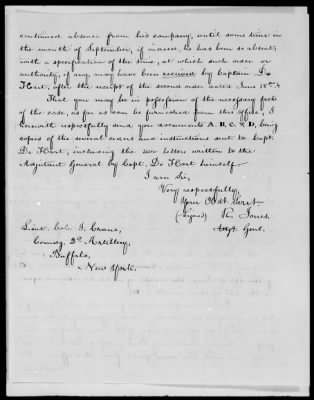 continued absence from his company, until some time in
the month of September, if indeed, he has been so absent,
with a specification of the time, at which such order or
authority, if any, may have been received by Captain De
Hart, after the receipt of the second order dated June 18th.
That you may be in possession of the necessary facts
of the case, as far as can be furnished from this office, I
herewith respectfully send you documents A. B. C. & D, being
copies of the several orders and instructions sent to Capt.
De Hart, including the two letters written to the
Adjutant General by Capt. De Hart himself.
I am Sir,
Very respectfully,
Your Obdt. Servt.
(Signed) R. Jones.
Adjt. Genl.
Lieut. Col. I. Crane,
Comdg. 2d Artillery,
Buffalo,
New York.